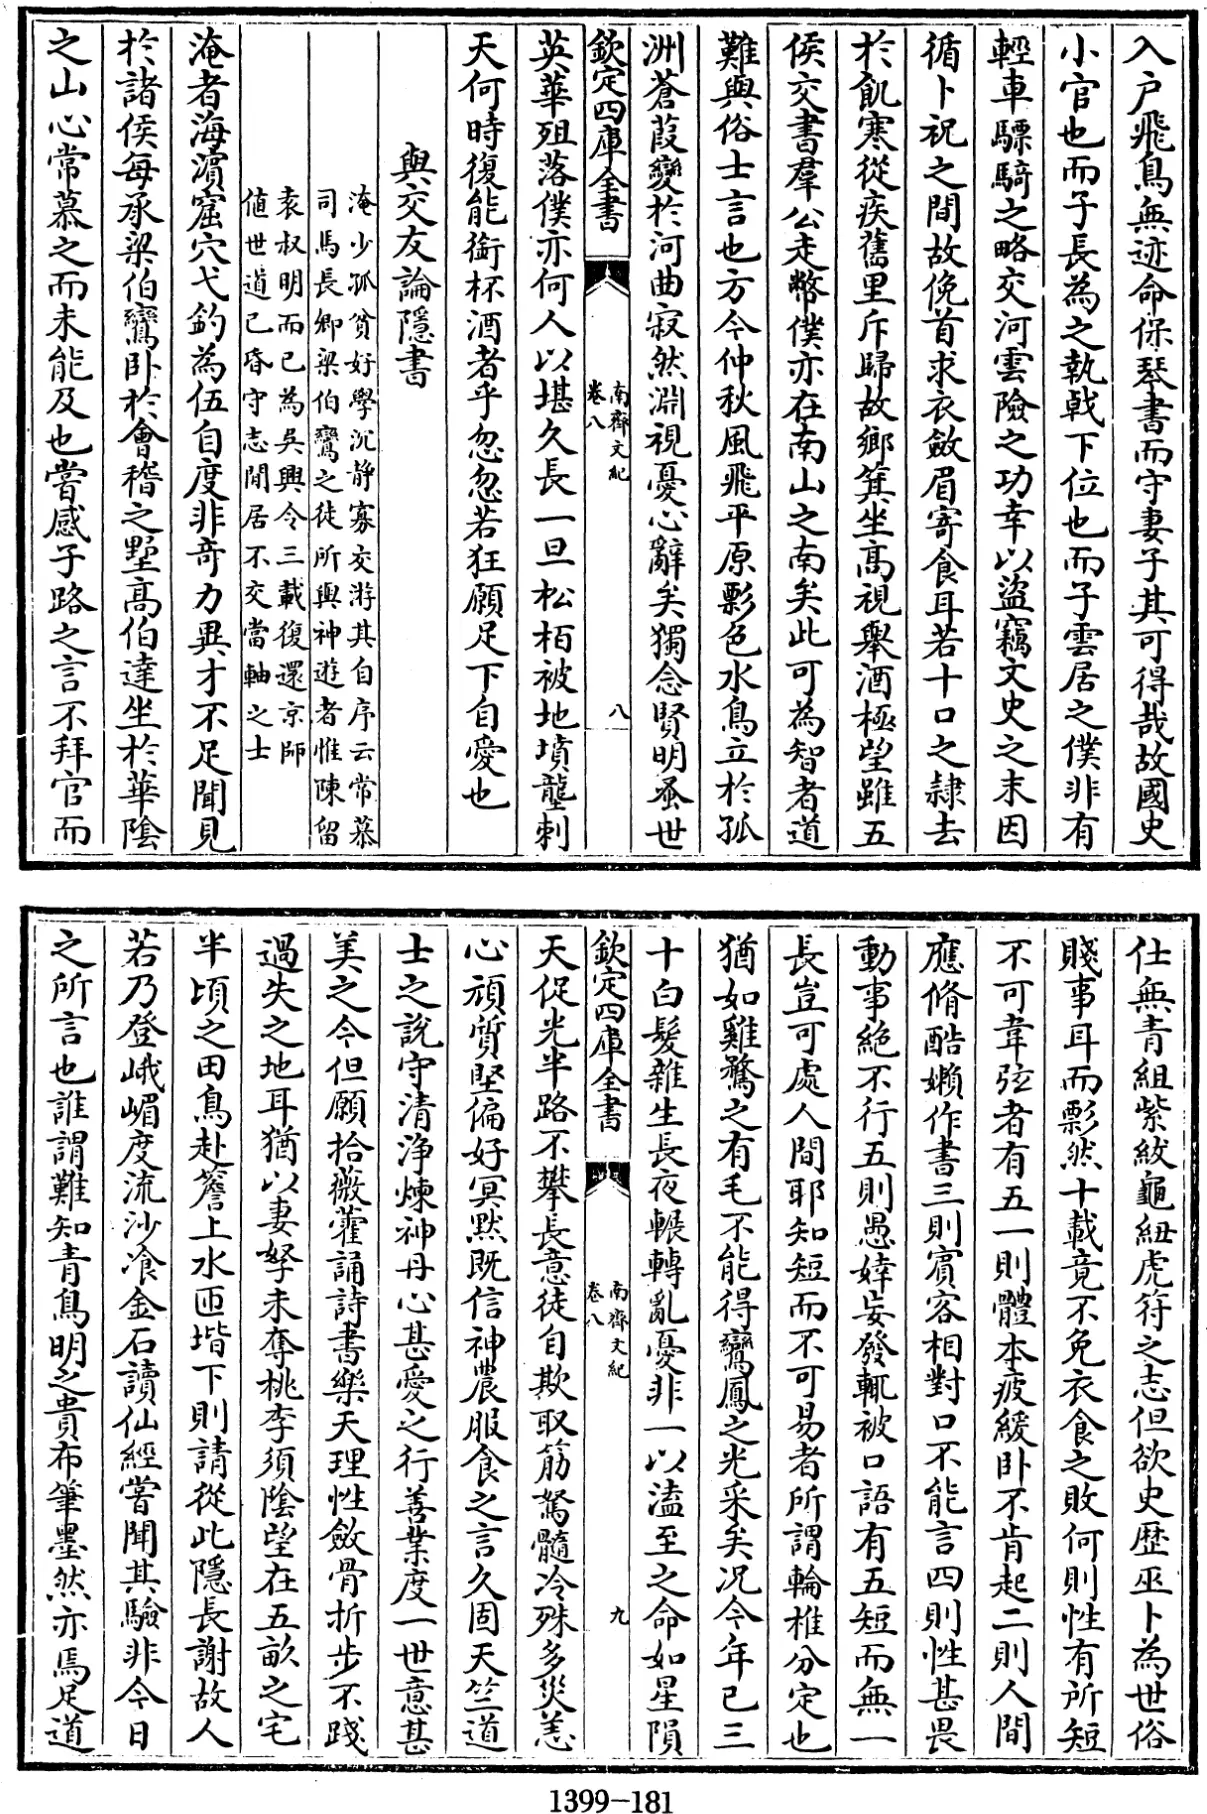 入户飛鳥無迹命保琴書而守妻子其可得哉故國史
小官也而子長為之執㦸下位也而子雲居之僕非有
輕車驃騎之略交河雲險之功幸以盜竊文史之末因
循卜祝之間故俛首求衣斂眉寄食耳若十口之隷去
於飢寒從疾舊里斥歸故鄉箕坐髙視舉酒極望雖五
侯交書羣公走幣僕亦在南山之南矣此可為智者道
難與俗士言也方今仲秋風飛平原彯色水鳥立於孤
洲蒼葭變於河曲寂然淵視憂心辭矣獨念賢明蚤世
欽定四庫全書
南齊文紀
卷八
八
英華殂落僕亦何人以堪久長一旦松柏被地墳壟刺
天何時復能銜杯酒者乎忽忽若狂願足下自愛也
與交友論隱書
淹少孤貧好學沉静寡交游其自序云常慕
司馬長卿梁伯鸞之徒所與神遊者惟陳留
袁叔明而已為吳興令三載復還京師
值世道已昏守志閒居不交當軸之士
淹者海濵窟穴弋釣為伍自度非奇力異才不足聞見
於諸侯每承梁伯鸞卧於會稽之墅髙伯達坐於華陰
之山心常慕之而未能及也嘗感子路之言不拜官而
仕無青組紫紱龜紐虎符之志但欲史歴巫卜為世俗
賤事耳而彯然十載竟不免衣食之敗何則性有所短
不可韋弦者有五一則體本疲緩卧不肯起二則人間
應脩酷嬾作書三則賓客相對口不能言四則性甚畏
動事絶不行五則愚婞妄發輒被口語有五短而無一
長豈可處人間耶知短而不可易者所謂輪椎分定也
猶如雞鶩之有毛不能得鸞鳳之光采矣况今年已三
十白髮雜生長夜輾轉亂憂非一以溘至之命如星隕
欽定四庫全書
南齊文紀
卷八
九
天促光半路不攀長意徒自欺取筋駑髓冷殊多災恙
心頑質堅偏好冥默既信神農服食之言久固天竺道
士之説守清浄煉神丹心甚愛之行善業度一世意甚
美之今但願拾薇藿誦詩書樂天理性斂骨折步不踐
過失之地耳猶以妻孥未奪桃李須陰望在五畝之宅
半頃之田鳥赴簷上水匝堦下則請從此隱長謝故人
若乃登峨嵋度流沙飡金石讀仙經嘗聞其驗非今日
之所言也誰謂難知青鳥明之貴布筆墨然亦焉足道
1399-181